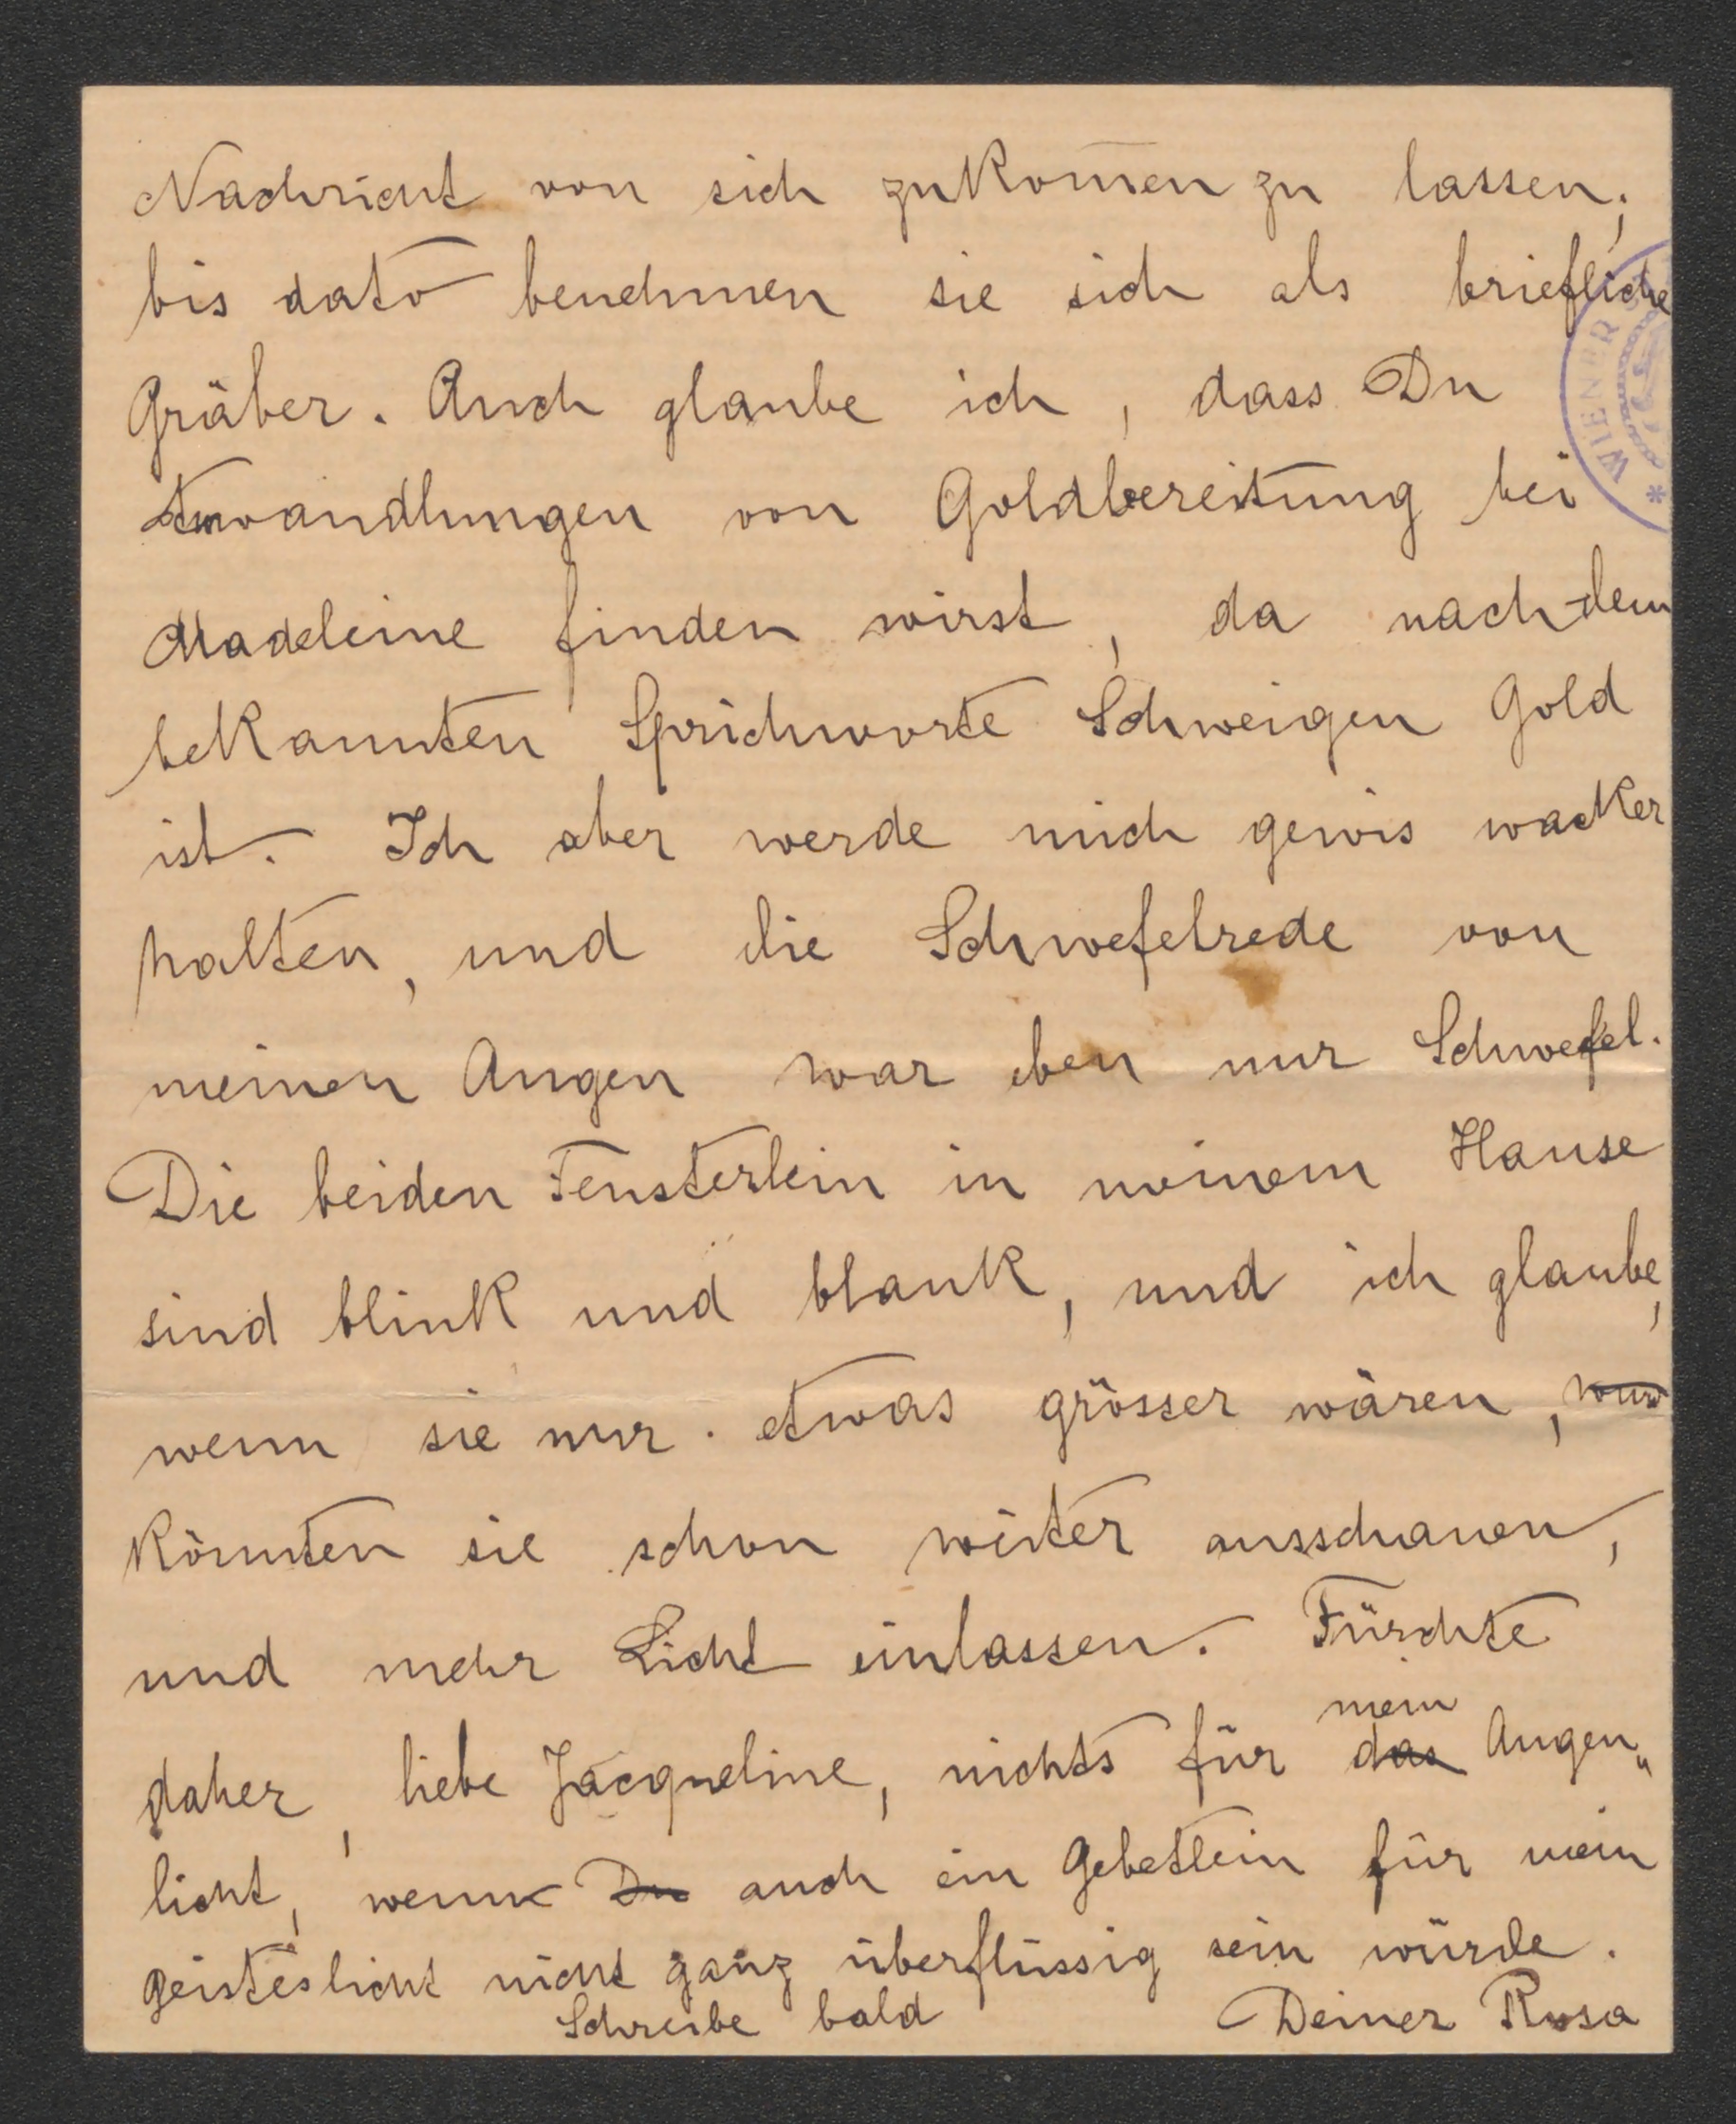 Nachricht von sich zukom̅en zu lassen;
bis dato benehmen sie sich als briefliche
Gräber. Auch glaube ich, dass Du
Anwandlungen von Goldbereitung bei
Madeleine finden wirst, da nach dem
bekannten Sprichworte Schweigen Gold
ist. Ich aber werde mich gewis wacker
halten, und die Schwefelrede von
meinen Augen war eben nur Schwefel.
Die beiden Fensterlein in meinem Hause
sind blink und blank, und ich glaube,
wenn sie nur etwas grösser wären,
könnten sie schon weiter ausschauen,
und mehr Licht einlassen. Fürchte
daher, liebe Jacqueline, nichts für das mein Augen„
licht, wenn Du auch ein Gebetlein für mein
Geisteslicht nicht ganz überflüssig sein würde.
Schreibe bald Deiner Rosa
WIENER